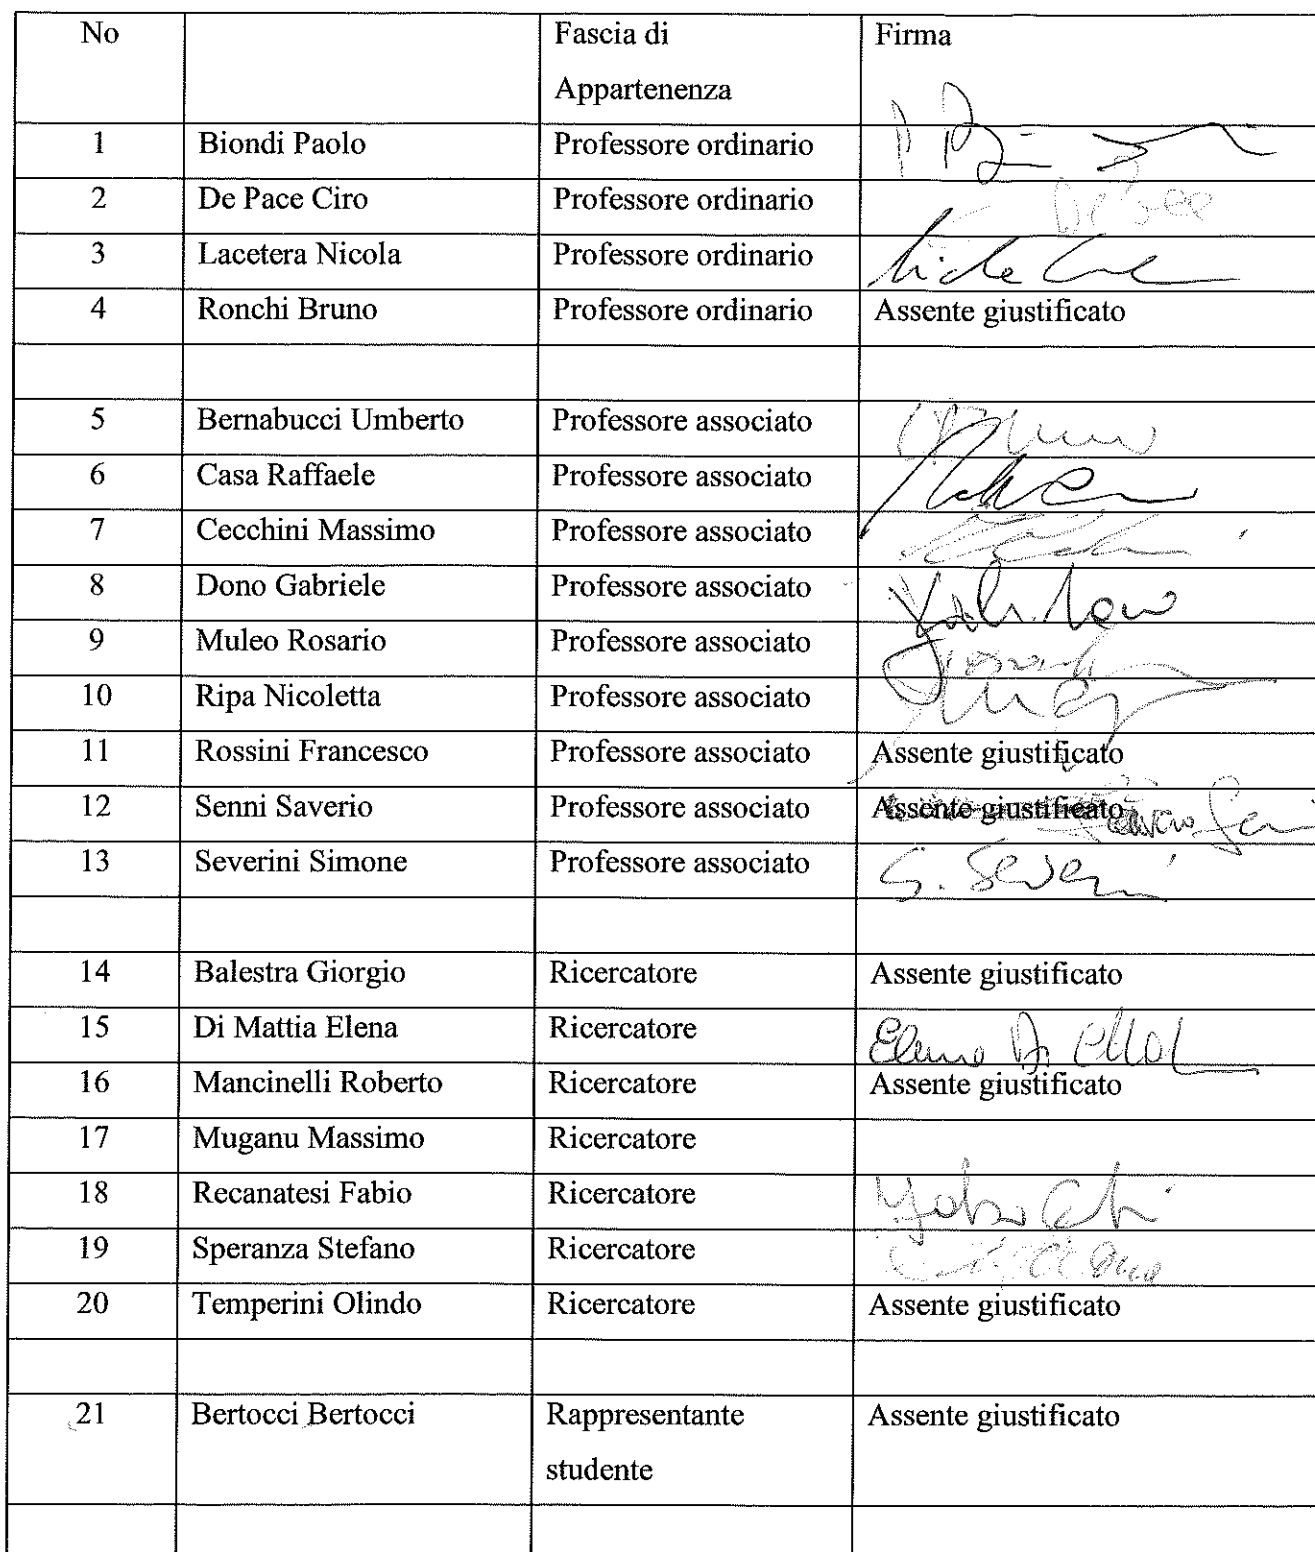 No Fascia di Firma
Appartenenza
1 Biondi Paolo Professore ordinario
2 De Pace Ciro Professore ordinario
3 Lacetera Nicola Professore ordinario
4 Ronchi Bruno Professore ordinario Assente giustificato
5 Bernabucci Umberto Professore associato
6 Casa Raffaele Professore associato
7 Cecchini Massimo Professore associato
8 Dono Gabriele Professore associato
9 Muleo Rosario Professore associato
10 Ripa Nicoletta Professore associato
11 Rossini Francesco Professore associato Assente giustificato
12 Senni Saverio Professore associato Assente giustificato
13 Severini Simone Professore associato S. Severini
14 Balestra Giorgio Ricercatore Assente giustificato
15 Di Mattia Elena Ricercatore Elena Di
16 Mancinelli Roberto Ricercatore Assente giustificato
17 Muganu Massimo Ricercatore
18 Recanatesi Fabio Ricercatore
19 Speranza Stefano Ricercatore
20 Temperini Olindo Ricercatore Assente giustificato
21 Bertocci Bertocci Rappresentante Assente giustificato
studente